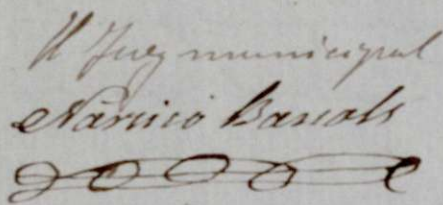 El Juez municipal
Narciso Barsols